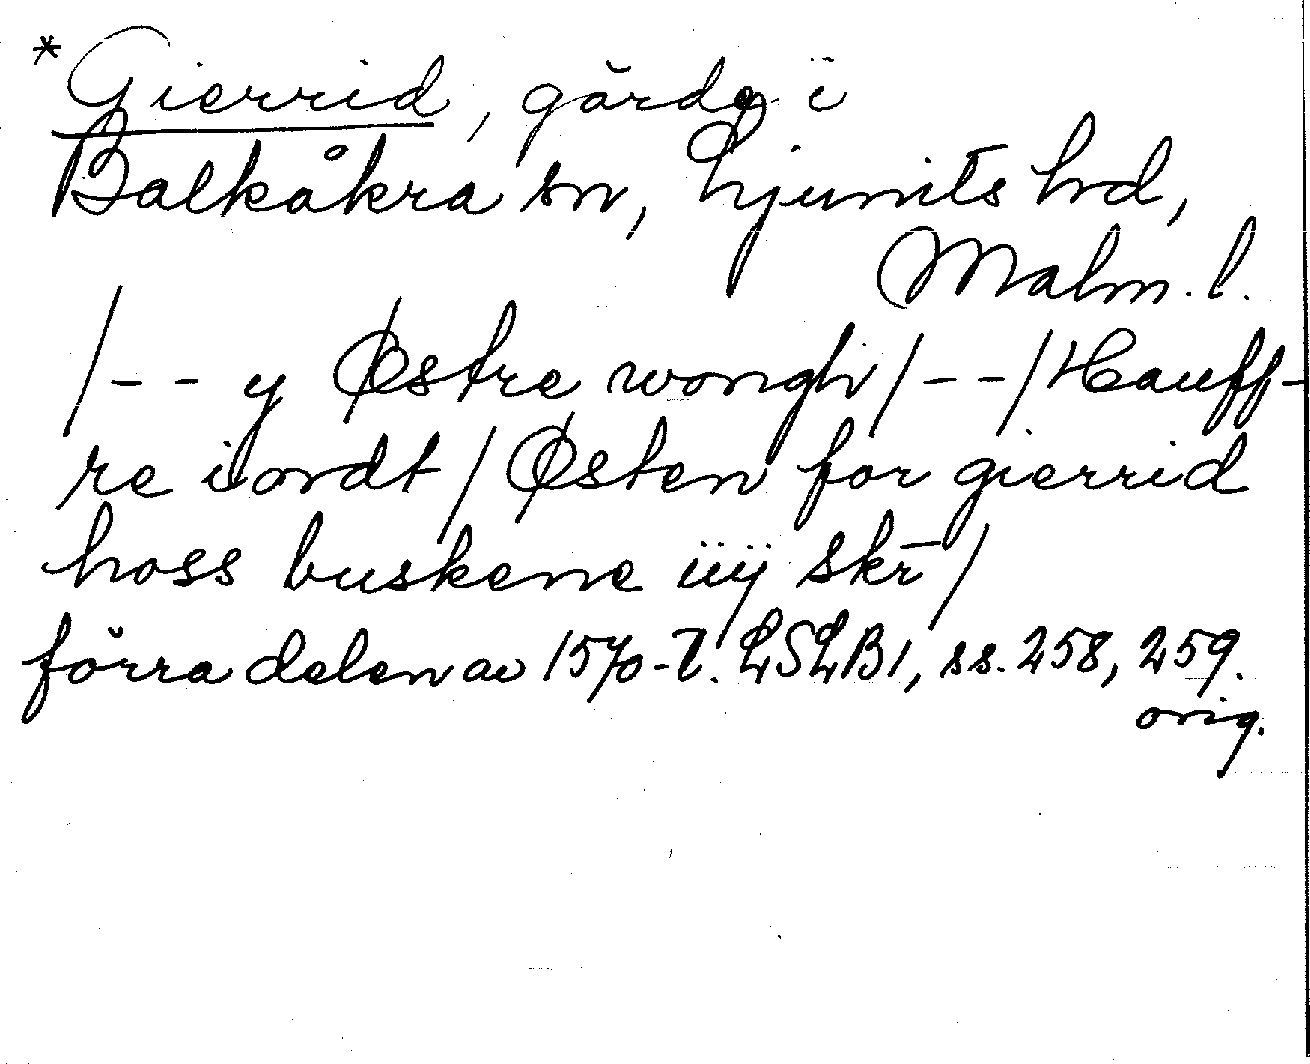 *Gierrid, gärde i
Balkåkra sn, Ljunits hrd,
Malm. l.
/-- y Østre wongh/--/Hauff-
re iordt/Østen for gierrid
hoss buskene iiij skr̄/
förra delen av 1570-t. LSLB1, ss. 258, 259.
orig.